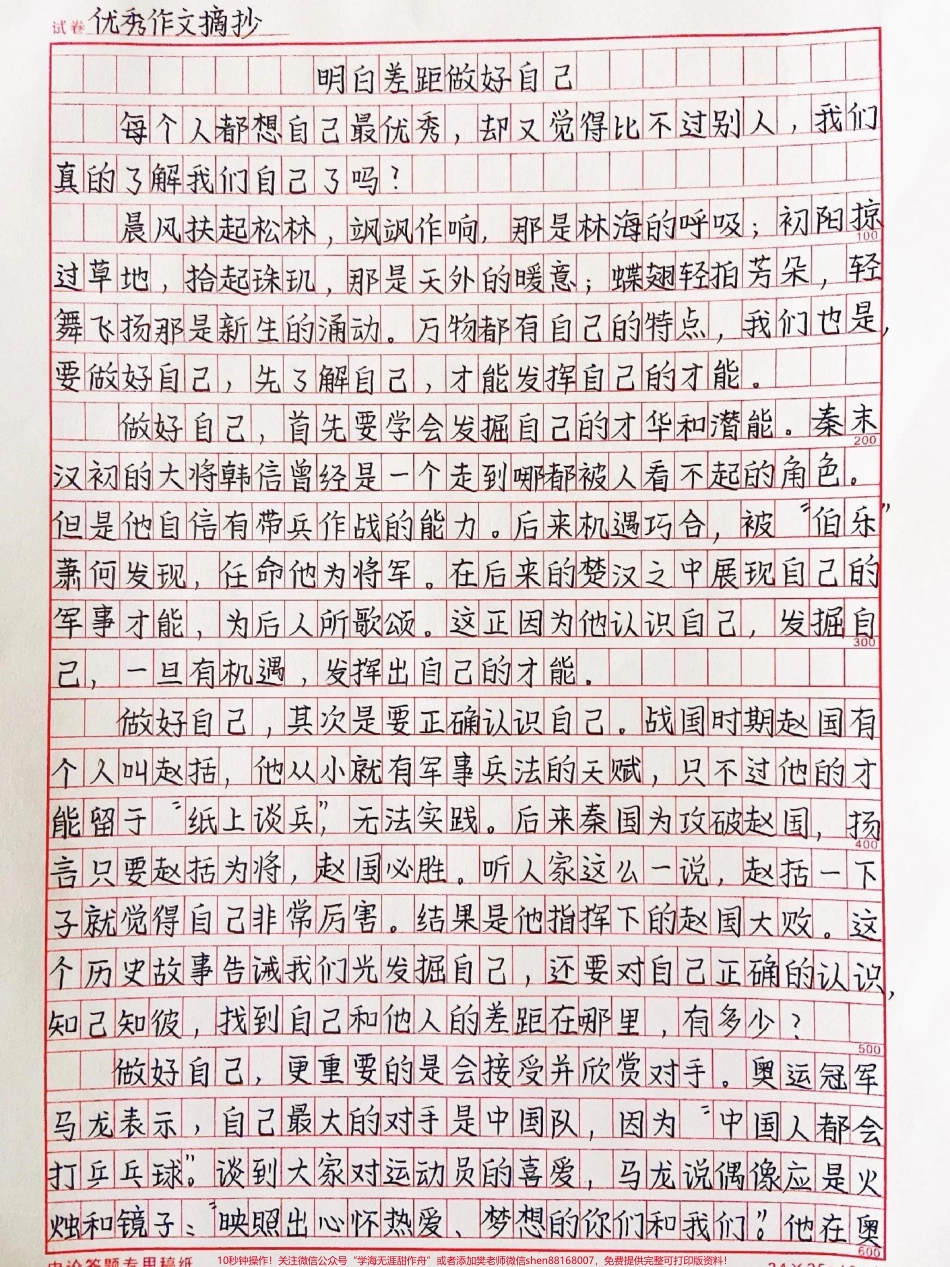 试卷 优秀作文摘抄
明白差距做好自己
每个人都想自己最优秀，却又觉得比不过别人，我们
真的了解我们自己了吗？
晨风扶起松林，飒飒作响，那是林海的呼吸；初阳掠
100
过草地，拾起珠玑，那是天外的暖意；蝶翅轻拍芳朵，轻
舞飞扬那是新生的涌动。万物都有自己的特点，我们也是，
要做好自己，先了解自己，才能发挥自己的才能。
做好自己，首先要学会发掘自己的才华和潜能。秦末
200
汉初的大将韩信曾经是一个走到哪都被人看不起的角色。
但是他自信有带兵作战的能力。后来机遇巧合，被“伯乐”
萧何发现，任命他为将军。在后来的楚汉之中展现自己的
军事才能，为后人所歌颂。这正因为他认识自己，发掘自
300
己，一旦有机遇，发挥出自己的才能。
做好自己，其次是要正确认识自己。战国时期赵国有
个人叫赵括，他从小就有军事兵法的天赋，只不过他的才
能留于“纸上谈兵”，无法实践。后来秦国为攻破赵国，扬
400
言只要赵括为将，赵国必胜。听人家这么一说，赵括一下
子就觉得自己非常厉害。结果是他指挥下的赵国大败。这
个历史故事告诫我们光发掘自己，还要对自己正确的认识，
知己知彼，找到自己和他人的差距在哪里，有多少？
500
做好自己，更重要的是会接受并欣赏对手。奥运冠军
马龙表示，自己最大的对手是中国队，因为“中国人都会
打乒乓球”。谈到大家对运动员的喜爱，马龙说偶像应是火
烛和镜子：“映照出心怀热爱、梦想的你们和我们”。他在奥
600
申论答题专用稿纸
10秒钟操作！关注微信公众号“学海无涯甜作舟”或者添加樊老师微信shen88168007，免费提供完整可打印版资料！